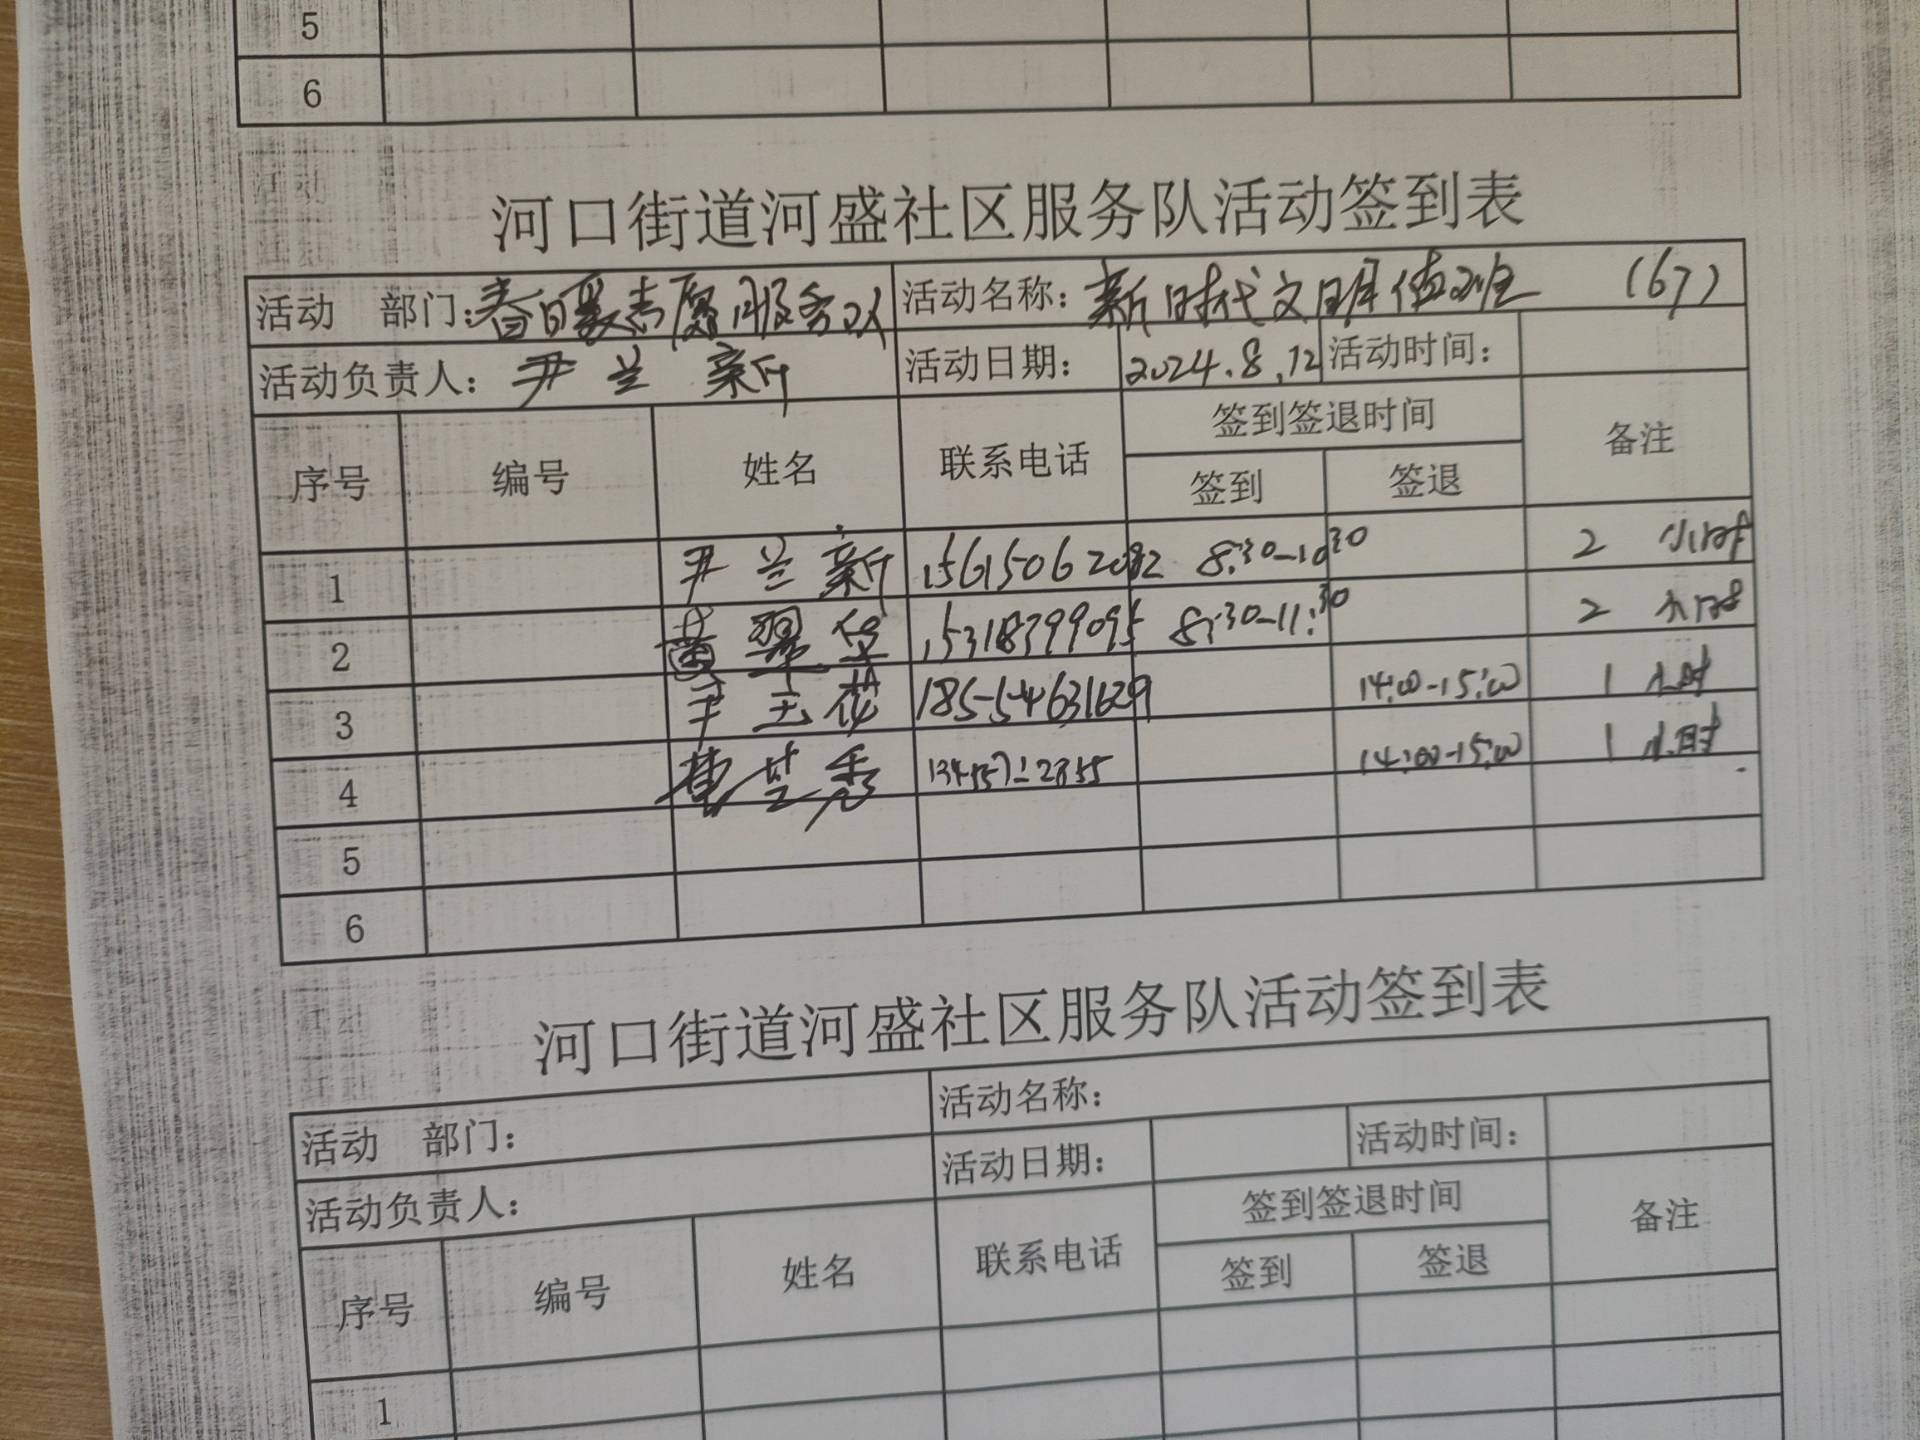 5
6
河口街道河盛社区服务队活动签到表
活动 部门:春日暖志愿服务队 活动名称:新时代文明值班 (67)
活动负责人: 尹兰新 活动日期: 2024.8.12 活动时间:
序号 编号 姓名 联系电话 签到签退时间 备注
签到 签退
1 尹兰新 15615062082 8:30-10:30 2 小时
2 黄翠华 15318399095 8:30-11:30 2 小时
3 尹玉花 18554631629 14:00-15:00 1 小时
4 芝秀 14:00-15:00 1 小时
5
6
河口街道河盛社区服务队活动签到表
活动 部门: 活动名称:
活动负责人: 活动日期: 活动时间:
序号 编号 姓名 联系电话 签到签退时间 备注
签到 签退
1